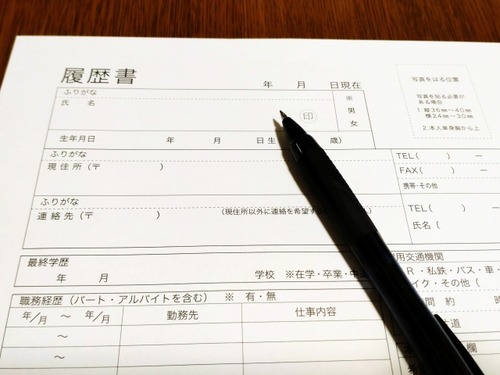 履歴書
年 月 日現在
写真をはる位置
ふりがな
氏 名
印
男
女
写真を貼る必要が
ある場合
1.縦36㎜〜40㎜
横24㎜〜30㎜
2.本人単身胸から上
生年月日 年 月 日生 歳)
ふりがな
現住所(〒 )
TEL( ) ー
FAX( ) ー
携帯・その他
ふりがな
連絡先(〒 ) (現住所以外に連絡を希望す
TEL( ー
氏名(
最終学歴
年 月 学校 ※在学・卒業・中
用交通機関
R・私鉄・バス・車・
イク・その他(
職務経歴(パート・アルバイトを含む) ※ 有・無
間 約 時
年/月 〜 年/月 勤務先 仕事内容
道
〜
欄
〜